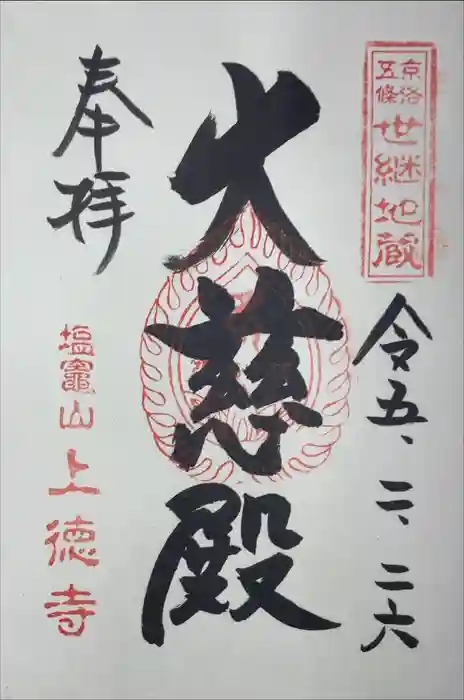 京洛
五條
世継地蔵
令五、二、二六
大慈殿
奉拝
塩竈山
上徳寺